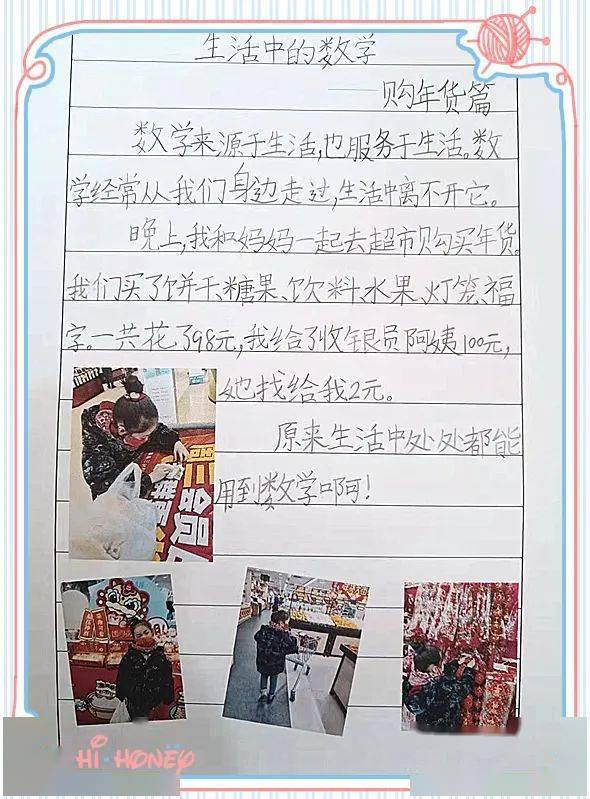 生活中的数学
——购年货篇
数学来源于生活,也服务于生活。数
学经常从我们身边走过,生活中离不开它。
晚上,我和妈妈一起去超市购买年货。
我们买了饼干、糖果、饮料、水果、灯笼、福
字。一共花了98元,我给了收银员阿姨100元,
她找给我2元。
原来生活中处处都能
用到数学啊!
会员
Hi·HONEY